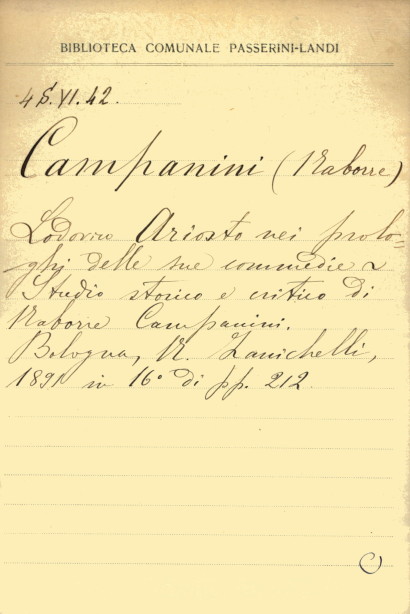 BIBLIOTECA COMUNALE PASSERINI-LANDI
4 S. VI. 42.
Campanini (Naborre)
Lodovico Ariosto nei prolo=
ghi delle sue commedie ~
Studio storico e critico di
Naborre Campanini.
Bologna, N. Zanichelli,
1891 in 16° di pp. 212
C